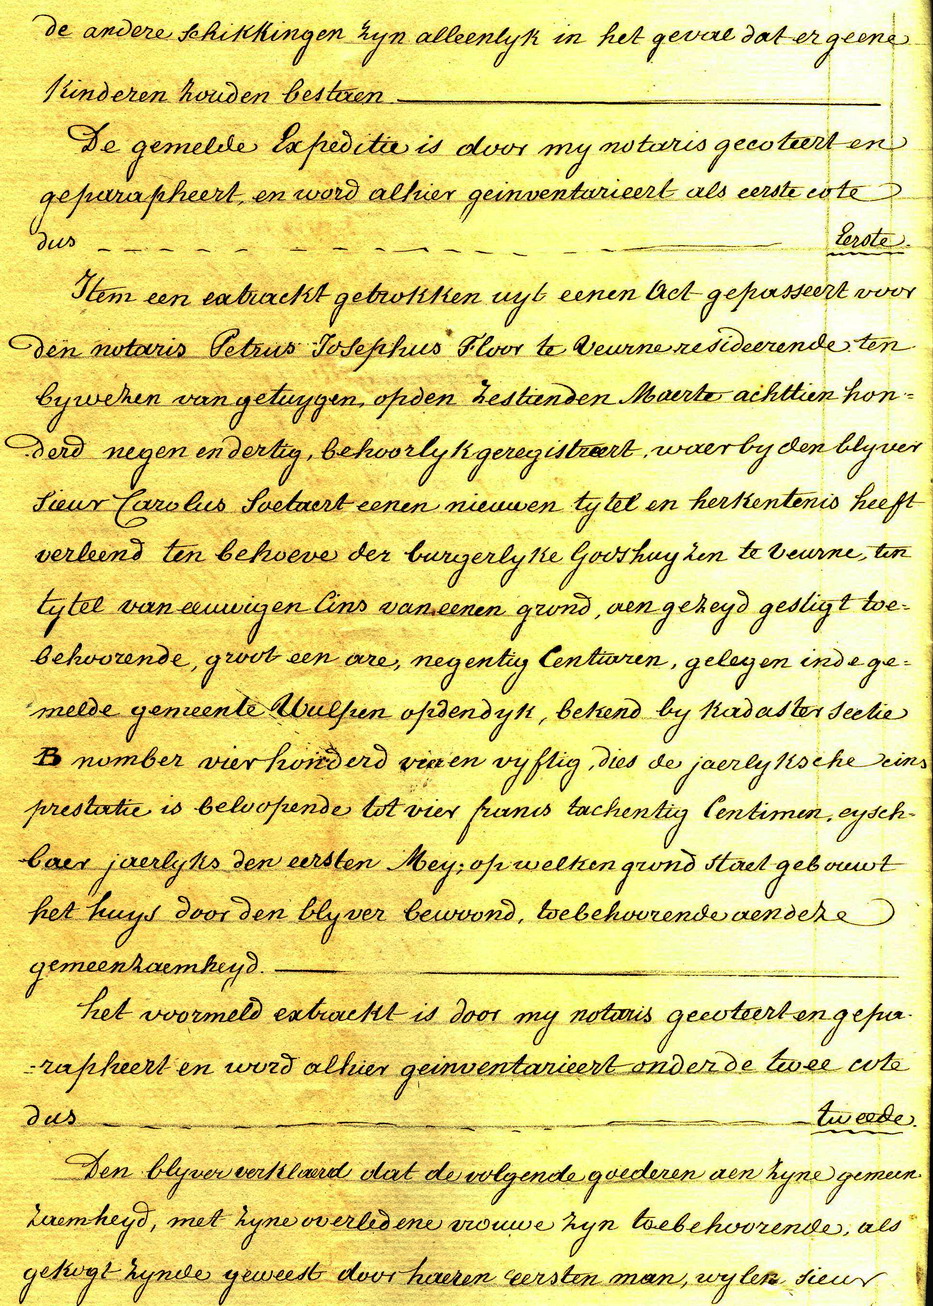 de andere schikkingen zyn alleenlyk in het geval dat er geene
kinderen zouden bestaen
De gemelde Expeditie is door my notaris gecoteert en
geparapheert, en word alhier geinventarieert als eerste cote
dus Eerste.
Item een extrackt getrokken uyt eenen Act gepasseert voor
den notaris Petrus Josephus Floor te Veurne resideerende ten
bywezen van getuygen, op den zestienden Maerte achttien hon=
derd negen en dertig, behoorlyk geregistreert, waer by den blyver
sieur Carolus Soetaert eenen nieuwen tytel en herkentenis heeft
verleend ten behoeve der burgerlyke Godshuyzen te Veurne, ten
tytel van eeuwigen Cins van eenen grond, aen gezeyd gestigt toe=
behoorende, groot een are, negentig Centiaren, gelegen in de ge=
melde gemeente Wulpen op den dyk, bekend by kadaster sectie
B nomber vier honderd vier en vyftig, dies de jaerlyksche cins
prestatie is beloopende tot vier francs tachentig Centimen, eysch-
baer jaerlyks den eersten Mey; op welken grond staet gebouwt
het huys door den blyver bewoond, toebehoorende aen deze
gemeenzaemheyd.
het voormeld extrackt is door my notaris gecoteert en gepa-
=rapheert en word alhier geinventarieert onder de twee cote
dus tweede.
Den blyver verklaerd dat de volgende goederen aen zyne gemeen
zaemheyd, met zyne overledene vrouwe zyn toebehoorende, als
gekogt zynde geweest door haeren eersten man, wylen sieur